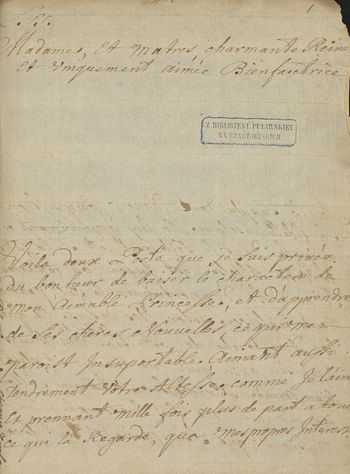 1
Madame, Et matres charmante Reine
Et Vniquement aimée Bienfaictrice
Z BIBLIOTEKI PUŁAWSKIEY
XX CZARTORYSKICH.
Voila deux Poste que je suis privée
du bonheur de baiser le charactere de
mon Aimable Princesse, et d'apprendre
de Ses cheres Nouvelles, ce qui me
paroist Insuportable. Aimant aussi
tendrement Votre Altesse, comme Je l'aim
Et prennant mille fois plus de part a tous
ce qui la Regarde, que mespropres Interest